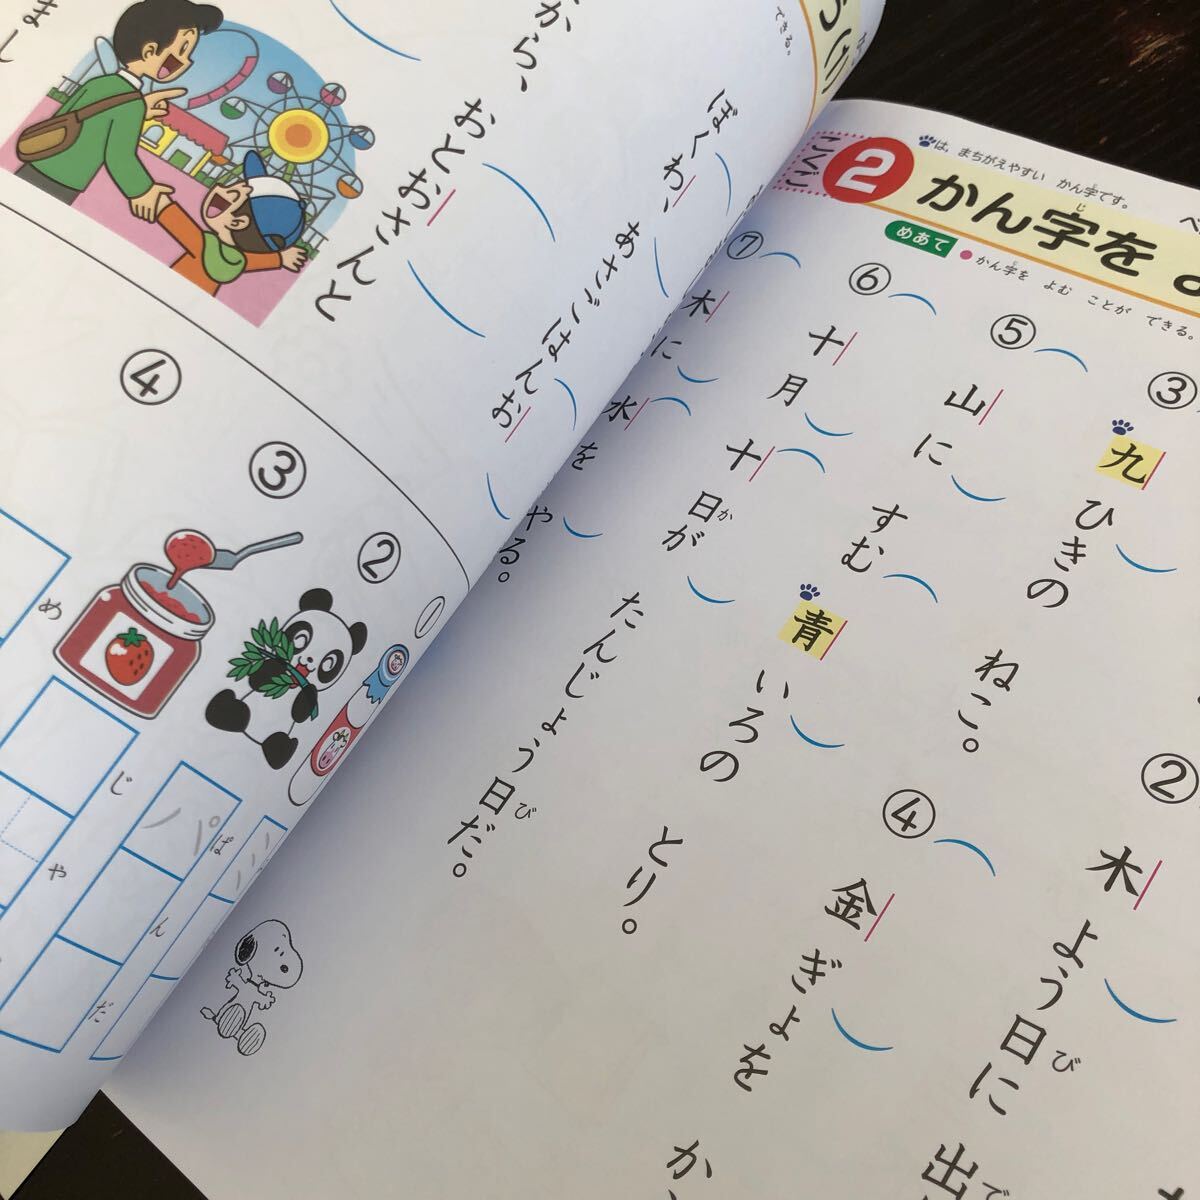 こくご
2
は、まちがえやすい かん字です。
かん字を
じ
めあて
かん字を よむ ことが できる。
②
木よう日に 出
び
で
③
九ひきの ねこ。
④
金ぎょを か
⑤
山に すむ 青いろの とり。
⑥
十月十日が たんじょう日だ。
か
び
⑦
木に 水を やる。
できる。
ぼくわ、あさごはんお
から、おとおさんと
まし
①
②
ぱんだ
パ
③
じゃ
④
め